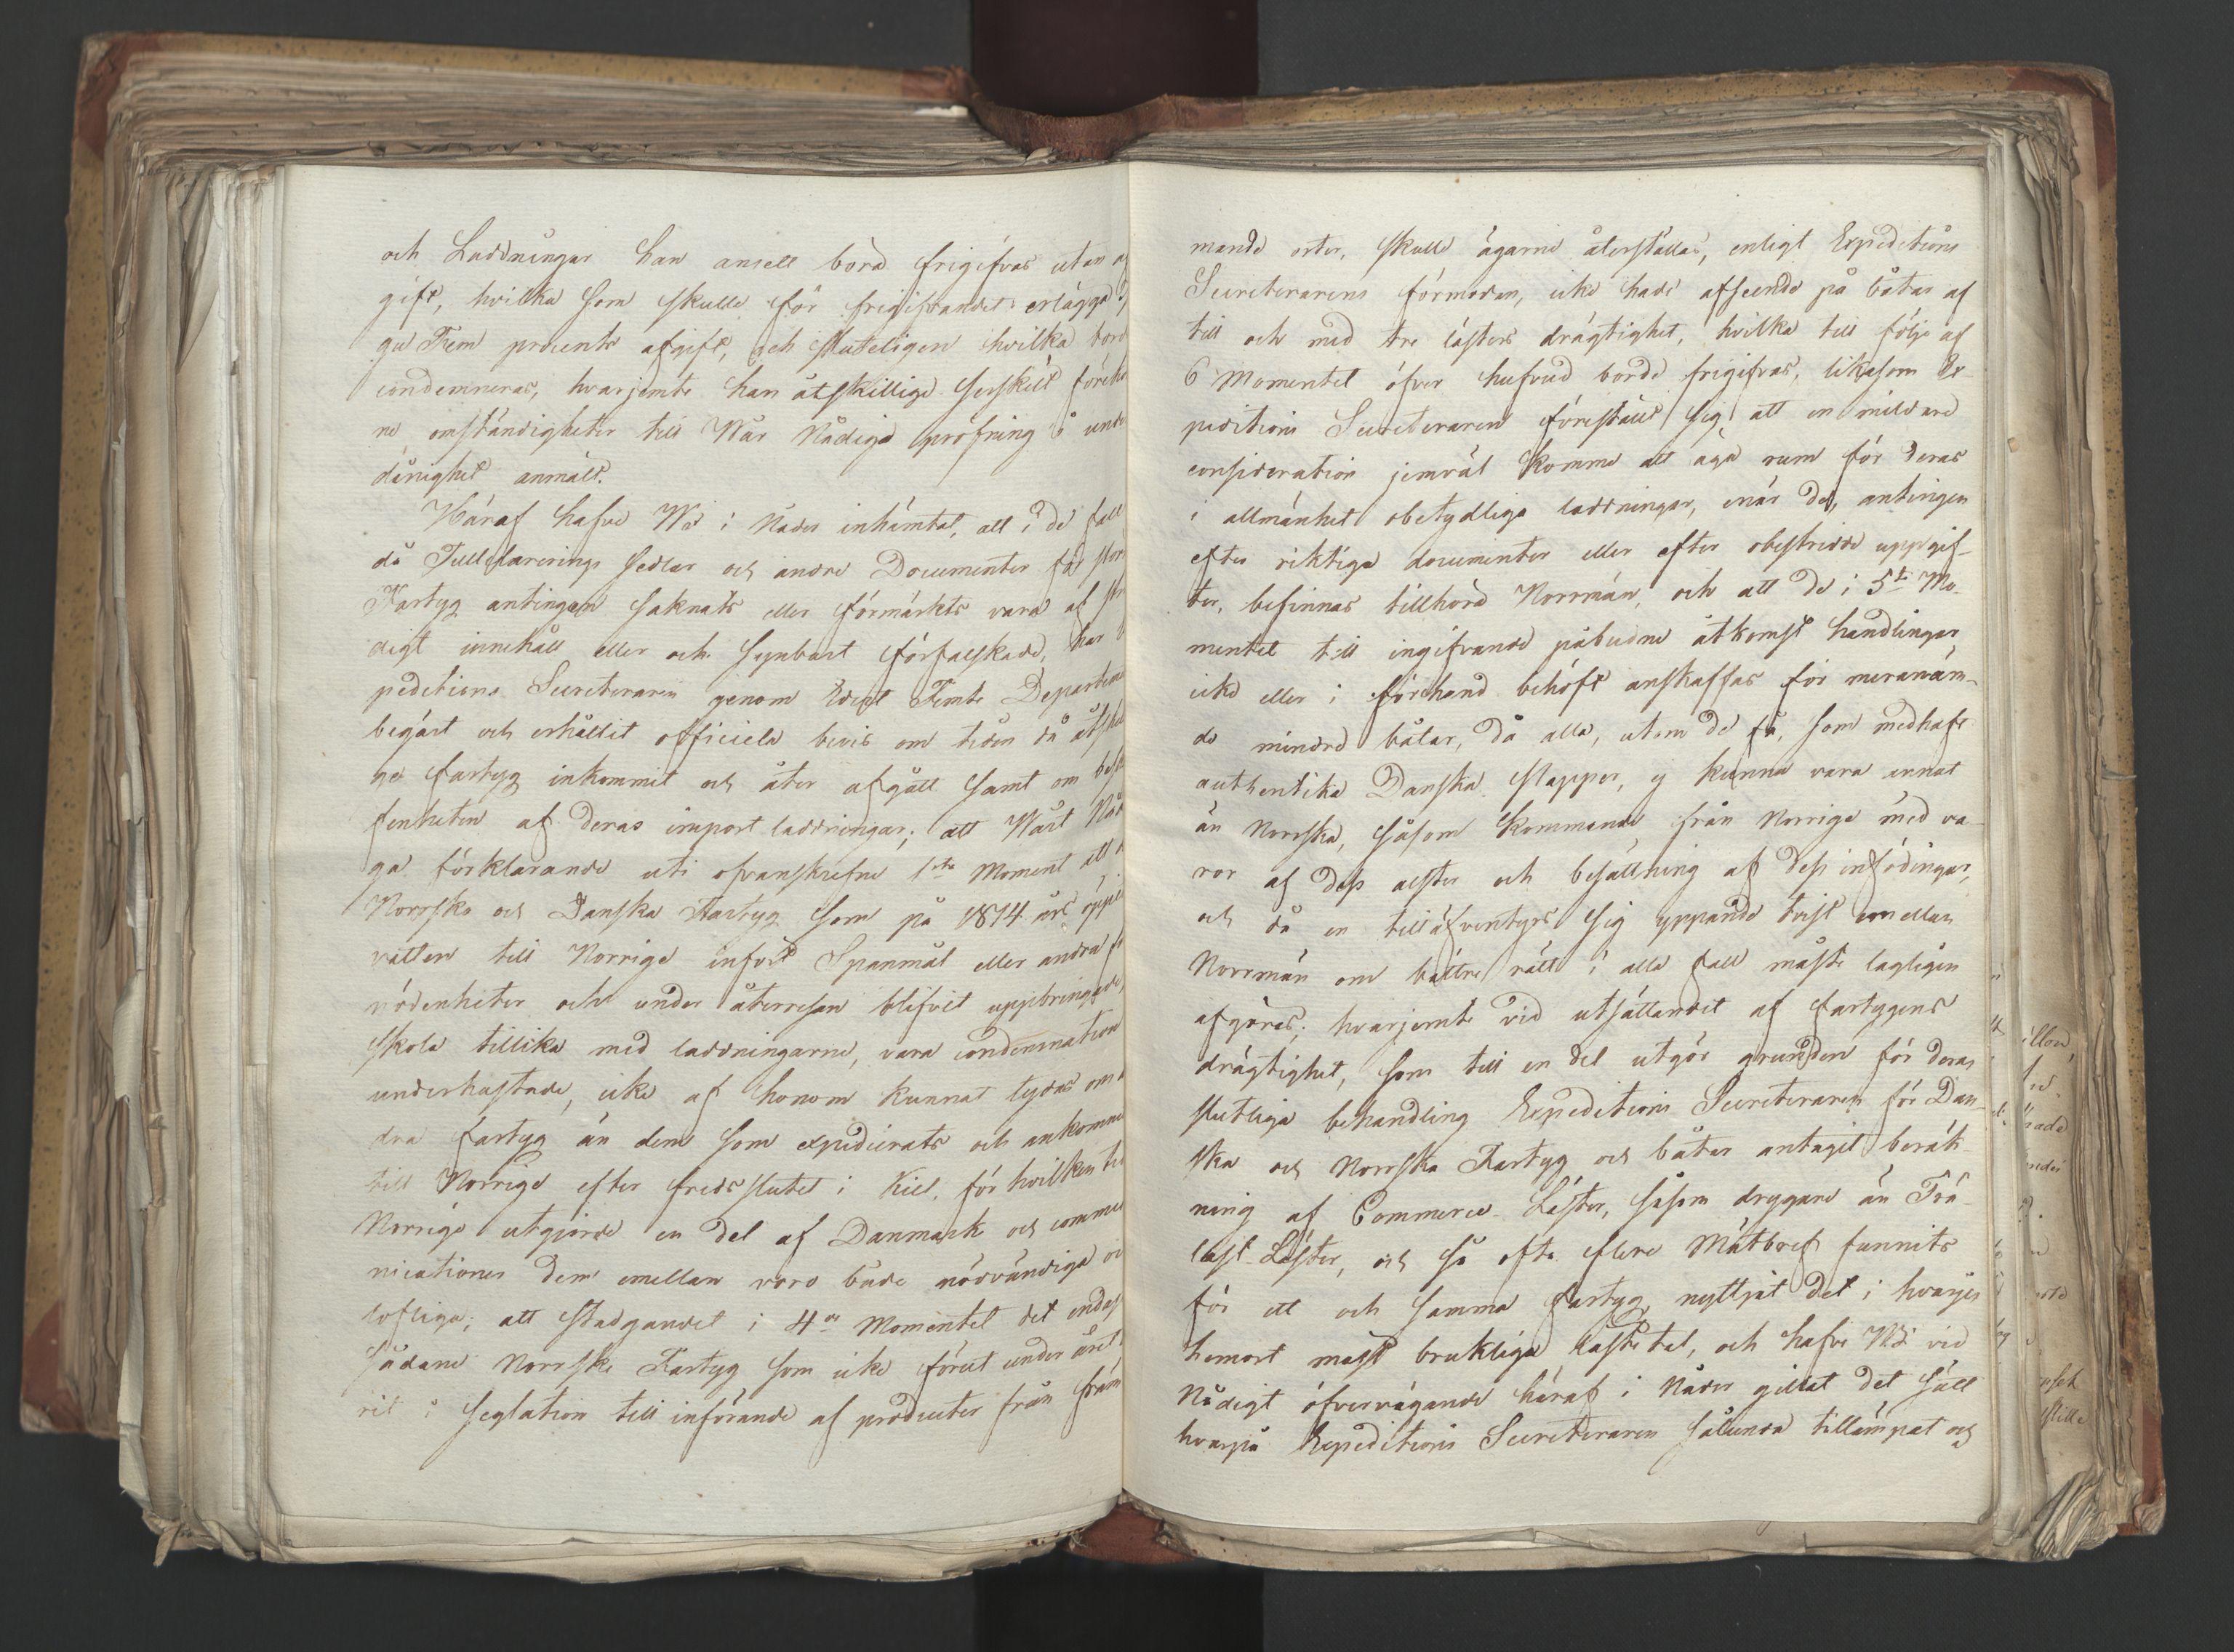 och Laddningar han ansett böra frigifvas utan af
gift, hvilka som skulle för frigifvandet erlägga
ga Fem procents afgift, och sluteligen hvilka bord
condemneras, hvarjemte han åtskillige serskilt föreko
ne omständigheter till Wår Nådiga pröfning i unde
dånighet anmält.
Häraf hafve Wi i Nåder inhämtat, att i de fall
då Tullclarerings Sedlar och andre Documenter för
Fartyg antingen saknats eller förmärkts vara af stri
digt innehåll eller och synbart förfalskade, har
peditions Secreteraren genom Edert Femte Departem
begärt och erhållit officiela bevis om tiden då åtskil
ge fartyg inkommit och åter afgått samt om beska
fenheten af deras import laddningar; att Wårt Nåd
ga förklarande uti ofvanskrefne 1sta Moment att
Norrska och Danska Fartyg som på 1814 års öppet
vatten till Norrige infört Spanmål eller andra
nödenheter och under återresan blifvit uppbringade,
skola tillika med laddningarne, vara condemnation
underkastade, icke af honom kunnat tydas om
dra fartyg än dem som expedierats och ankomma
till Norrige efter fredsslutet i Kiel, för hvilken tid
Norrige utgjorde en del af Danmark och commu
nicationer dem emellan voro både nödvändiga och
lofliga; att stadgandet i 4de Momentet det endast
sådane Norrska Fartyg som icke förut under året
rit i Seglation till införande af producter från främ
mande orter, skulle ägarne återställas, enligt Expeditions
Secreterarens förmodan, icke hade afseende på båtar af
till och med tre lästers drägtighet, hvilka till följe af
6 Momentet öfver hufvud borde frigifvas, likasom Ex-
peditions Secreteraren föreställt sig att en mildare
consideration jemväl komme att äga rum för deras
i allmänhet obetydliga laddningar, enär de, antingen
efter riktiga documenter eller efter obestridde uppgif-
ter, befinnas tillhöra Norrmän, och att de i 5te Mo-
mentet till ingifvande påbudne åtkomst handlingar
icke eller i förehand behöft anskaffas för meranäm-
de mindre båtar, då alla, utom de få, som medhaft
authentika Danska Papper, ej kunna vara annat
än Norrska, såsom kommande från Norrige med va-
ror af dess alster och besättning af dess infödingar,
och då en tilläfventyrs sig yppande tvist emellan
Norrmän om bättre rätt i alla fall måste lagligen
afgöras; hvarjemte vid utsättandet af fartygens
drägtighet, som till en del utgör grunden för deras
slutliga behandling Expeditions Secreteraren för Dan-
ska och Norrska Fartyg och båtar antagit beräk-
ning af Commerce-Läster, såsom drygare än Trä-
last-Läster, och så ofta flere Mätbref funnits
för ett och samma fartyg nyttjat det i hvarje
hemort mäst brukliga lästetal, och hafve Wi vid
Nådigt öfvervägande häraf i Nåder gillat det sätt
hvarpå Expeditions Secreteraren sålunda tillämpat och